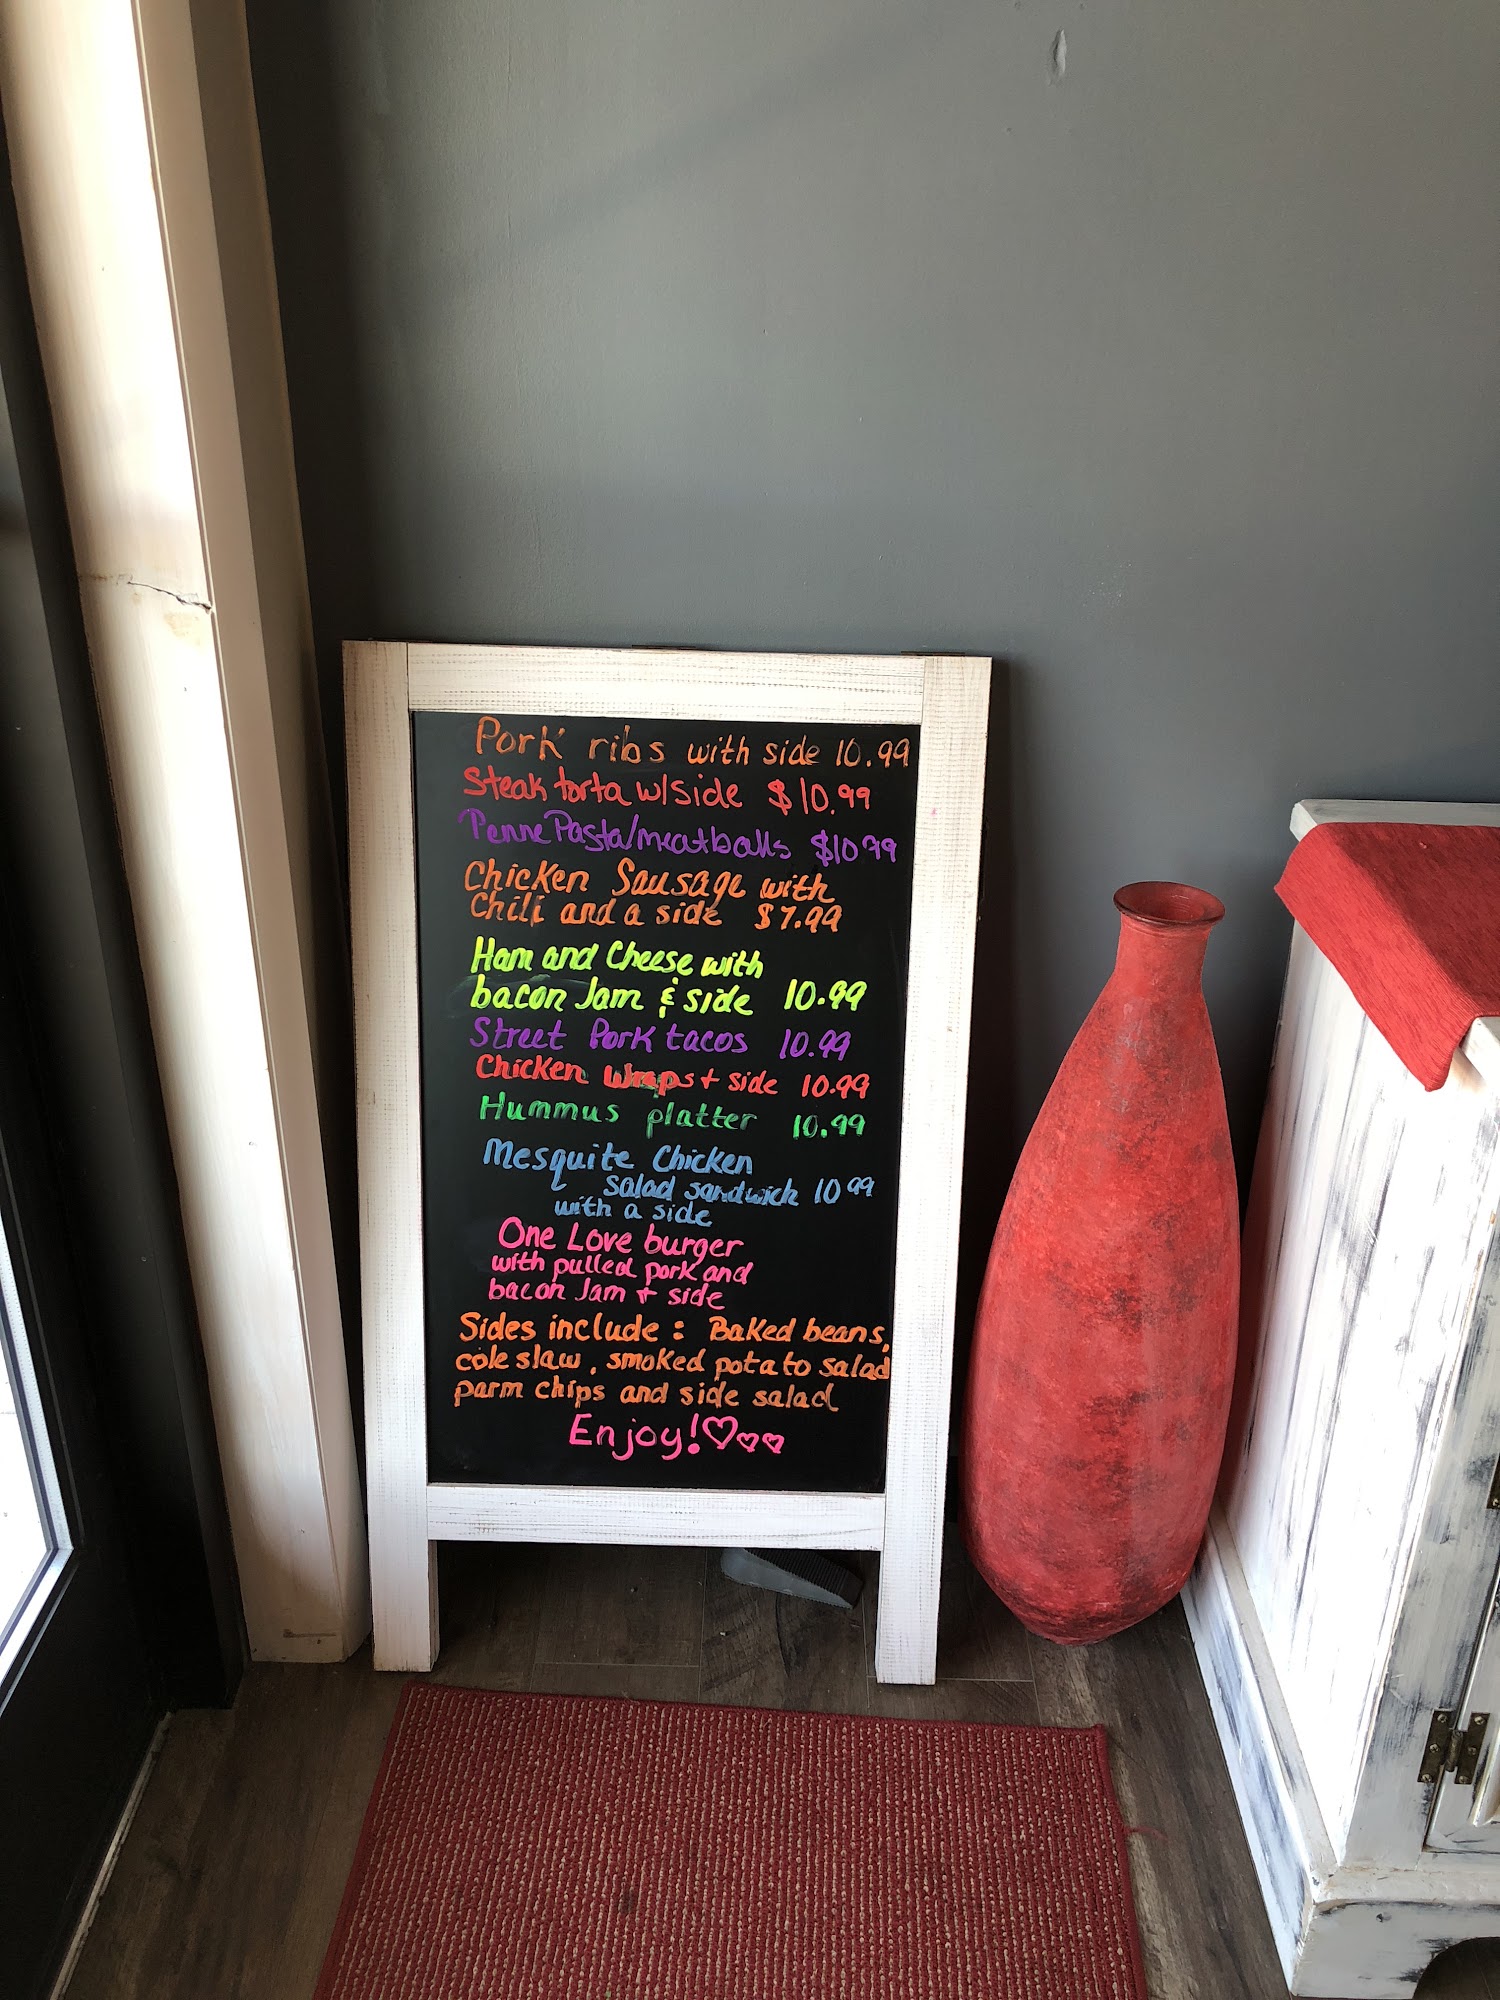 Pork ribs with side 10.99
Steak torta w/side $10.99
Penne Pasta/meatballs $10 99
Chicken Sausage with
Chili and a side $7.99
Ham and Cheese with
bacon Jam & side 10.99
Street Pork tacos 10.99
Chicken wraps + side 10.99
Hummus platter 10.99
Mesquite Chicken
salad sandwich 10 99
with a side
One Love burger
with pulled pork and
bacon Jam + side
Sides include: Baked beans,
coleslaw, smoked potato salad
parm chips and side salad
Enjoy!♡♡♡